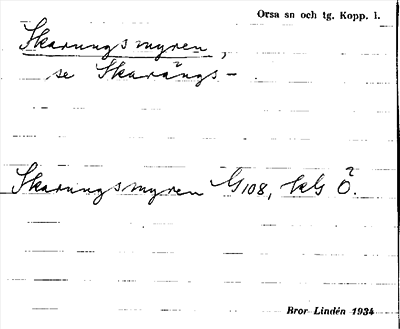 Orsa sn och tg. Kopp. l.
Skarungsmyren,
se Skarängs-
Skarungsmyren G108, hls Ö.
Bror Lindén 1934